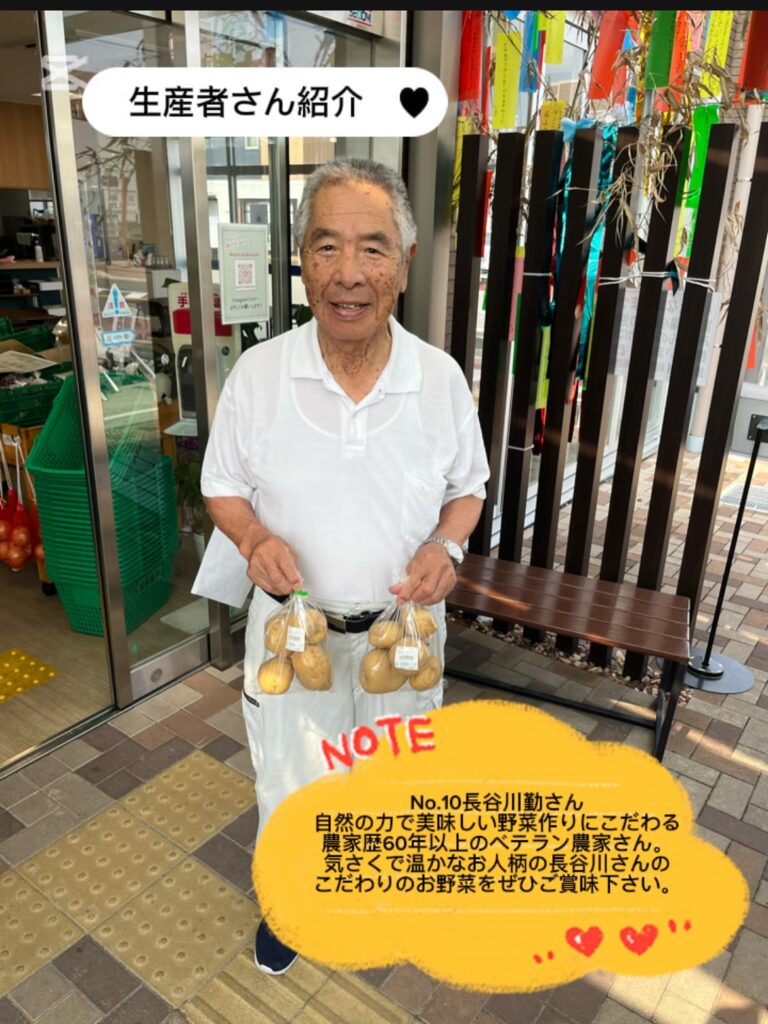 SECOM
生産者さん紹介 ♥
NOTE
No.10長谷川勤さん
自然の力で美味しい野菜作りにこだわる
農家歴60年以上のベテラン農家さん。
気さくで温かなお人柄の長谷川さんの
こだわりのお野菜をぜひご賞味下さい。